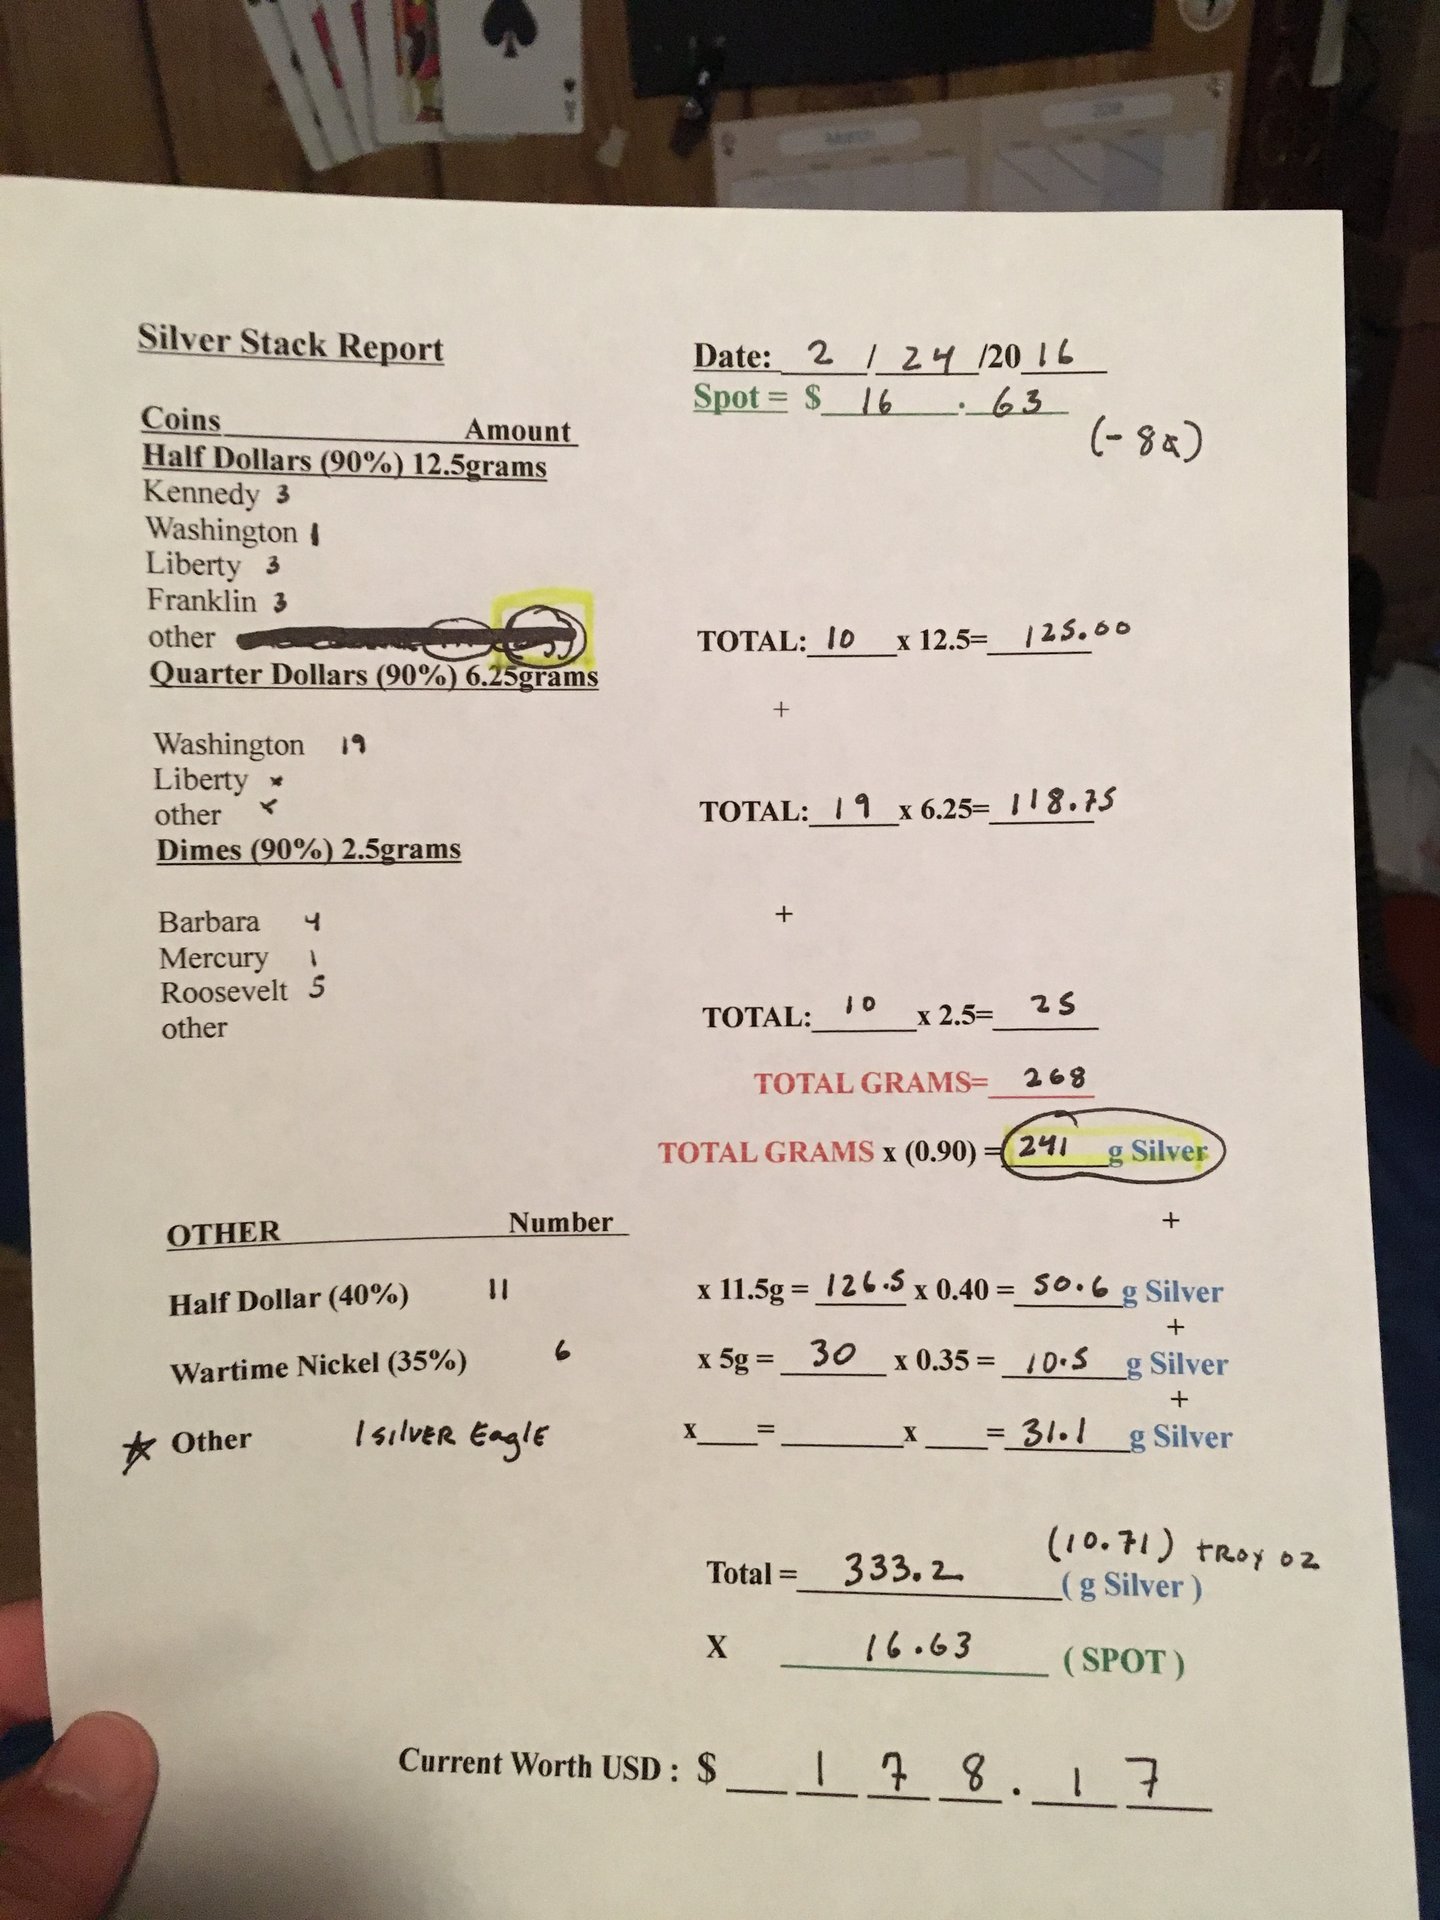 Silver Stack Report
Date: 2 / 24 /20 16
Spot = $ 16 . 63
(- 8¢)
Coins Amount
Half Dollars (90%) 12.5grams
Kennedy 3
Washington 1
Liberty 3
Franklin 3
other
TOTAL: 10 x 12.5= 125.00
Quarter Dollars (90%) 6.25grams
+
Washington 19
Liberty x
other x
TOTAL: 19 x 6.25= 118.75
Dimes (90%) 2.5grams
+
Barbara 4
Mercury 1
Roosevelt 5
other
TOTAL: 10 x 2.5= 25
TOTAL GRAMS= 268
TOTAL GRAMS x (0.90) = 241 g Silver
+
OTHER Number
Half Dollar (40%) 11 x 11.5g = 126.5 x 0.40 = 50.6 g Silver
+
Wartime Nickel (35%) 6 x 5g = 30 x 0.35 = 10.5 g Silver
+
Other 1 SILVER EaglE x = x = 31.1 g Silver
(10.71) TROY OZ
Total = 333.2 ( g Silver )
X 16.63 ( SPOT )
Current Worth USD : $ 1 7 8 . 1 7